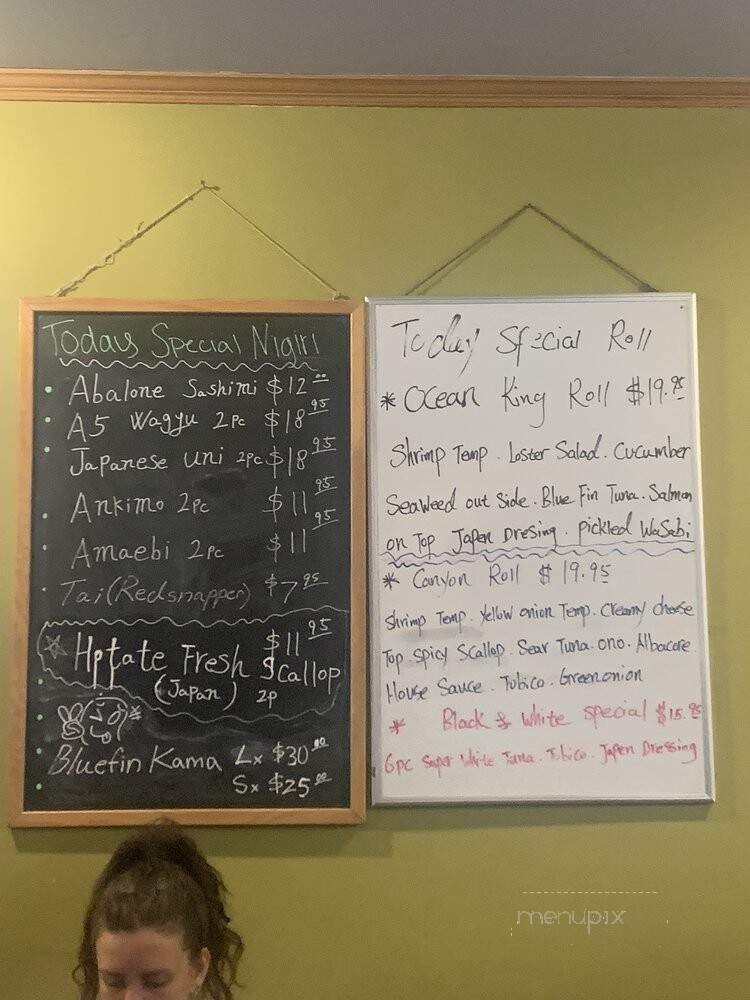 Todays Special Nigiri
• Abalone Sashimi $12.00
• A5 Wagyu 2pc $18.95
• Japanese uni 2pc $18.95
• Ankimo 2pc $11.95
• Amaebi 2pc $11.95
• Tai (Redsnapper) $7.95
Hotate Fresh Scallop $11.95
(Japan) 2p
Bluefin Kama Lx $30.00
Sx $25.00
Today Special Roll
* Ocean King Roll $19.95
Shrimp Temp. Loster Salad. Cucumber
Seaweed out Side. Blue Fin Tuna. Salmon
on Top Japen Dresing. pickled Wasabi
* Canyon Roll $19.95
Shrimp Temp. Yellow onion Temp. Creamy cheese
Top. Spicy Scallop. Sear Tuna. ono. Albacore.
House Sauce. Tobico. Greenonion
* Black & White Special $15.95
6pc Super White Tuna. Tobico. Japen Dressing
menupix